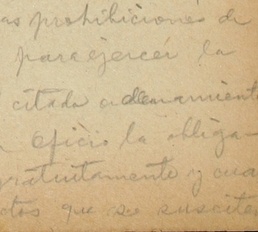 as prohibiciones de
para ejercer la
citada ordenamiento
oficio la obliga-
gratuitamente y cua
ctos que se suscite